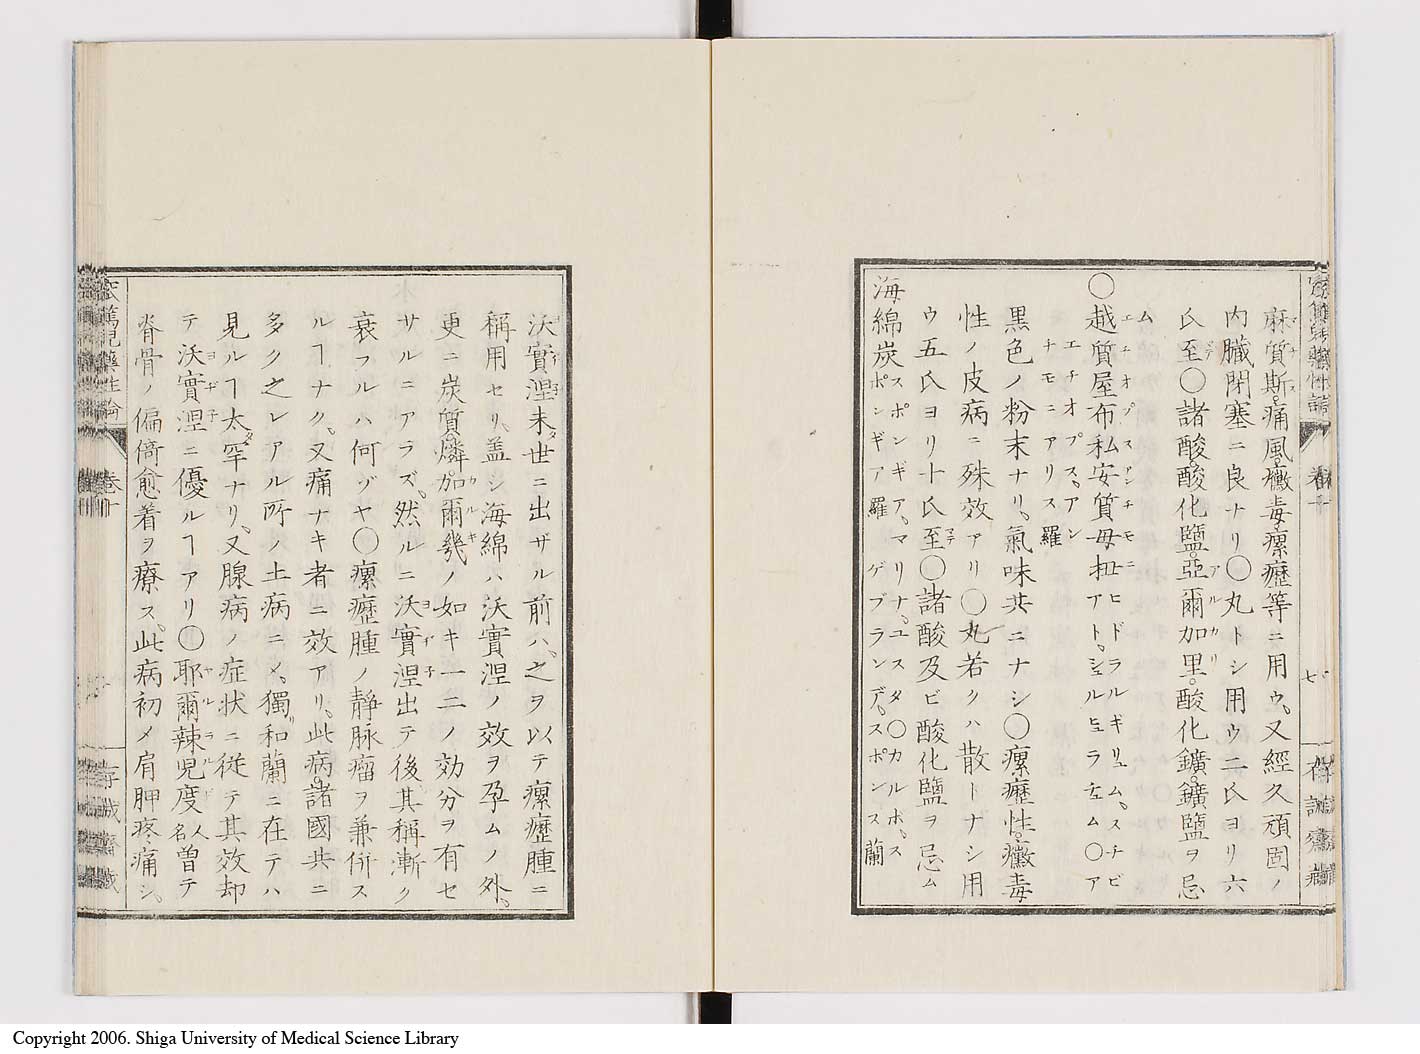 麻質斯。痛風。黴毒。瘰癧等ニ用ウ。又經久頑固ノ
内臓閉塞ニ良ナリ〇丸トシ用ウ二氏ヨリ六
氏至〇諸酸酸化鹽。亞爾加里。酸化鑛。鑛鹽ヲ忌
ム
〇越質屋布私安質母扭ヒドラルギリュム。スチビ
エチオプス。アンチモニアリス羅
アト。シュルヒュラチム〇ア
黒色ノ粉末ナリ。氣味共ニナシ〇瘰癧性。黴毒
性ノ皮病ニ殊效アリ〇丸若クハ散トナシ用
ウ五氏ヨリ十氏至〇諸酸及ビ酸化鹽ヲ忌ム
海綿炭スポンギア。マリナ。ユスタ〇カルボ。ス
ポンギア羅 ゲブランデ。スポンス蘭
沃實涅未世ニ出ザル前ハ。之ヲ以テ瘰癧腫ニ
稱用セリ。盖シ海綿ハ沃實涅ノ效ヲ孕ムノ外。
更ニ炭質。燐。加爾幾ノ如キ一二ノ効分ヲ有セ
サルニアラズ。然ルニ沃實涅出テ後其稱漸ク
衰フルハ何ヅヤ〇瘰癧腫ノ靜脉瘤ヲ兼併ス
ルヿナク。又痛ナキ者ニ效アリ。此病。諸國共ニ
多ク之レアル所ノ土病ニメ。獨和蘭ニ在テハ
見ルヿ太罕ナリ。又腺病ノ症状ニ従テ其效却
テ沃實涅ニ優ルヿアリ〇耶爾辣兒度人名曽テ
脊骨ノ偏倚愈着ヲ療ス。此病初メ肩胛疼痛シ。
卷十